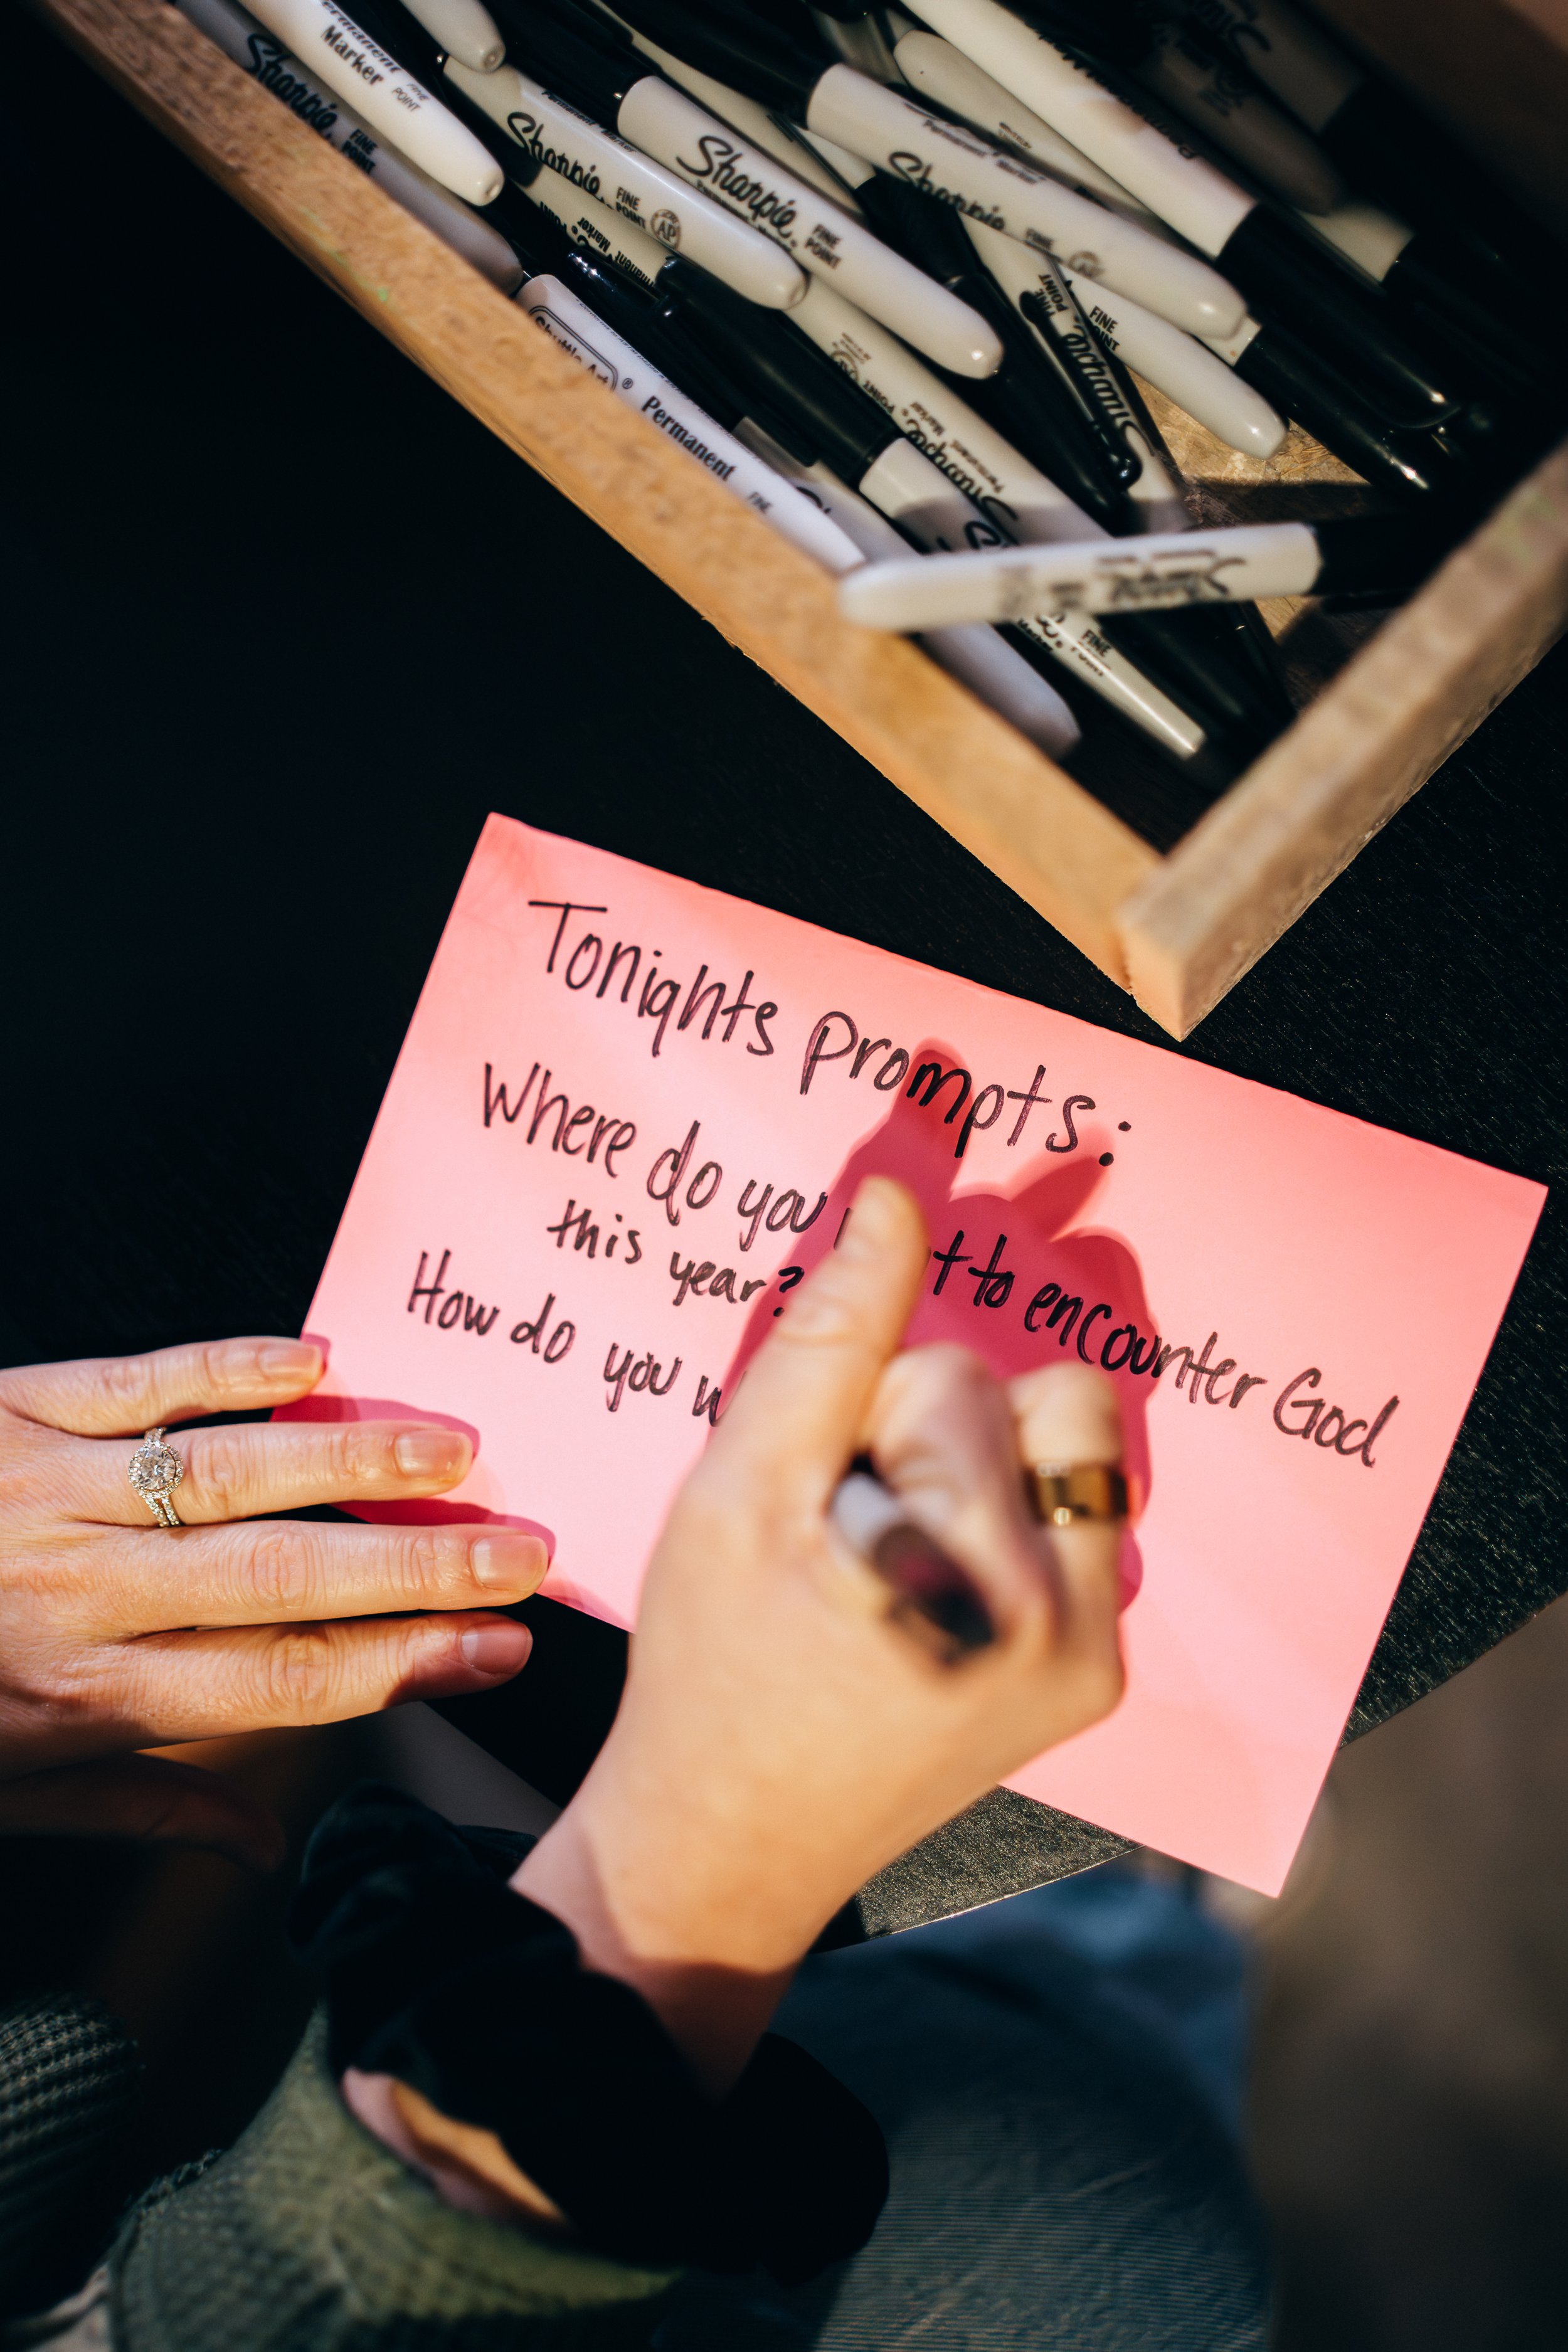 Permanent
Marker FINE
POINT
Sharpie FINE
POINT
Sharpie. FINE
POINT AP
Sharpie. FINE
POINT
Sharpie FINE
FINE
POINT
Sharpie
FINE
POINT
Sharpie
Permanent Marker
Shuttle Art ®
Permanent FINE
FINE
Tonights prompts:
Where do you t to encounter God
this year?
How do you w